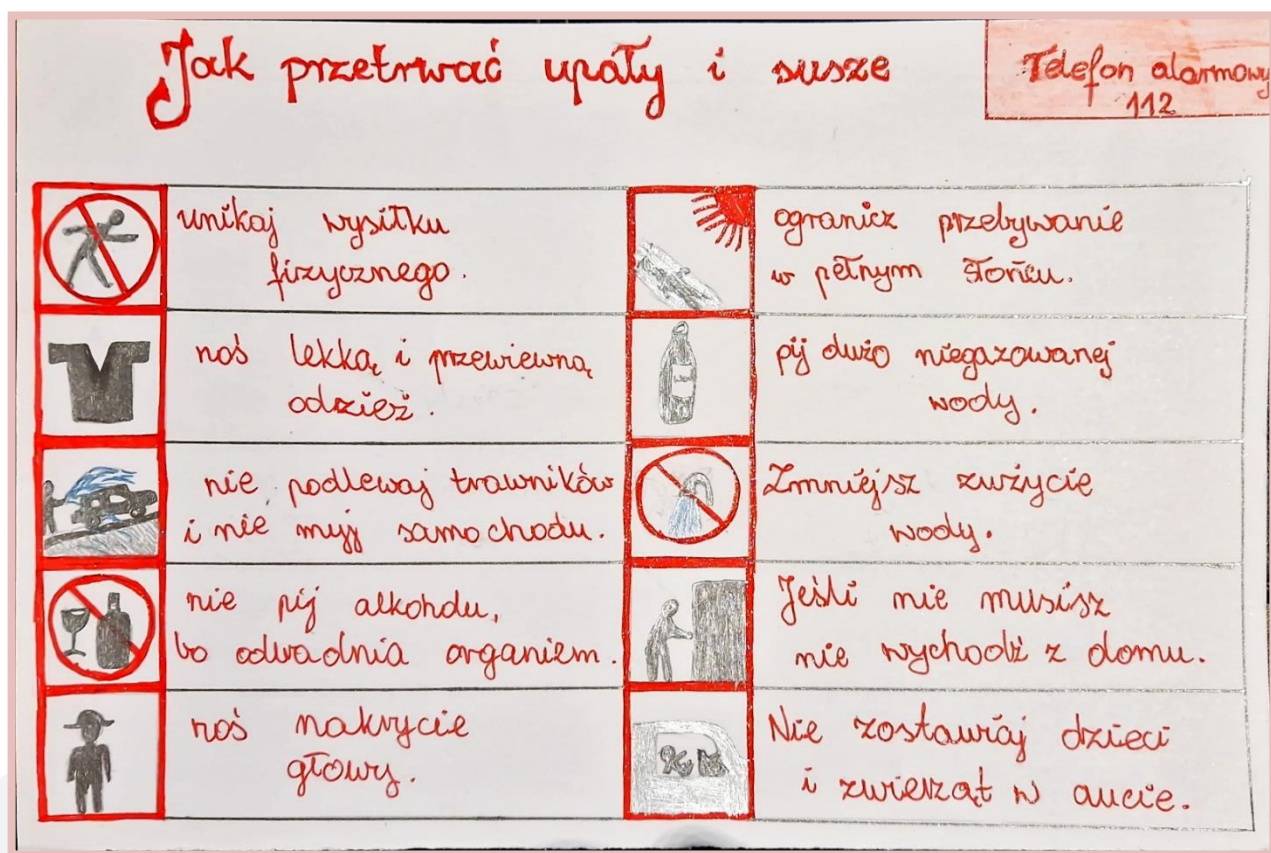 Jak przetrwać upały i susze
Telefon alarmowy
112
unikaj wysiłku
fizycznego.
noś lekką i przewiewną
odzież.
nie podlewaj trawników
i nie myj samochodu.
nie pij alkoholu,
bo odwadnia organizm.
noś nakrycie
głowy.
ogranicz przebywanie
w pełnym słońcu.
pij dużo niegazowanej
wody.
Zmniejsz zużycie
wody.
Jeśli nie musisz
nie wychodź z domu.
Nie zostawiaj dzieci
i zwierząt w aucie.